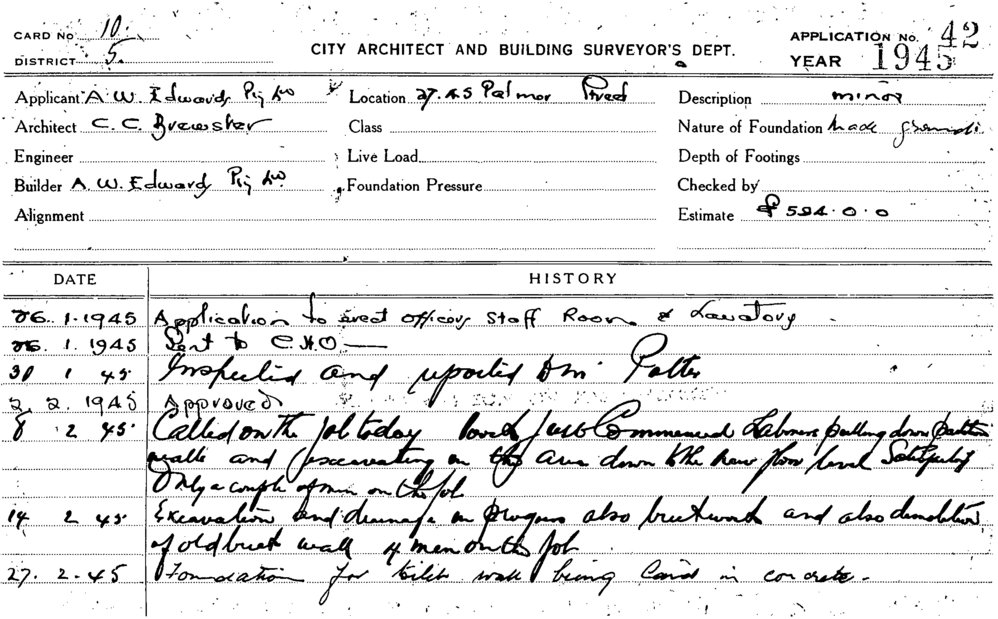 CARD No 10.
DISTRICT 5.
CITY ARCHITECT AND BUILDING SURVEYOR'S DEPT.
APPLICATION No. 42
YEAR 1945
Applicant A. W. Edwards Pty Ltd
Location 27.45 Palmer Street
Description minor
Architect C. C. Brewster
Class
Nature of Foundation made ground
Engineer
Live Load
Depth of Footings
Builder A. W. Edwards Pty Ltd
Foundation Pressure
Checked by
Alignment
Estimate £ 594.0.0
DATE HISTORY
26. 1. 1945 Application to erect Officers Staff Room & Lavatory.
26. 1. 1945 Sent to C.H.O
30 1 45 Inspected and reported Potter
2. 2. 1945 Approved
8 2 45 Called on the job today just Commenced Labourers pulling down
walls and excavating on the area down to the new floor level
Only a couple of men on the job
14 2 45 Excavation and drainage in progress also brickwork and also demolition
of old brick wall 4 men on the job
27. 2. 45 Foundation for toilet wall being laid in concrete.